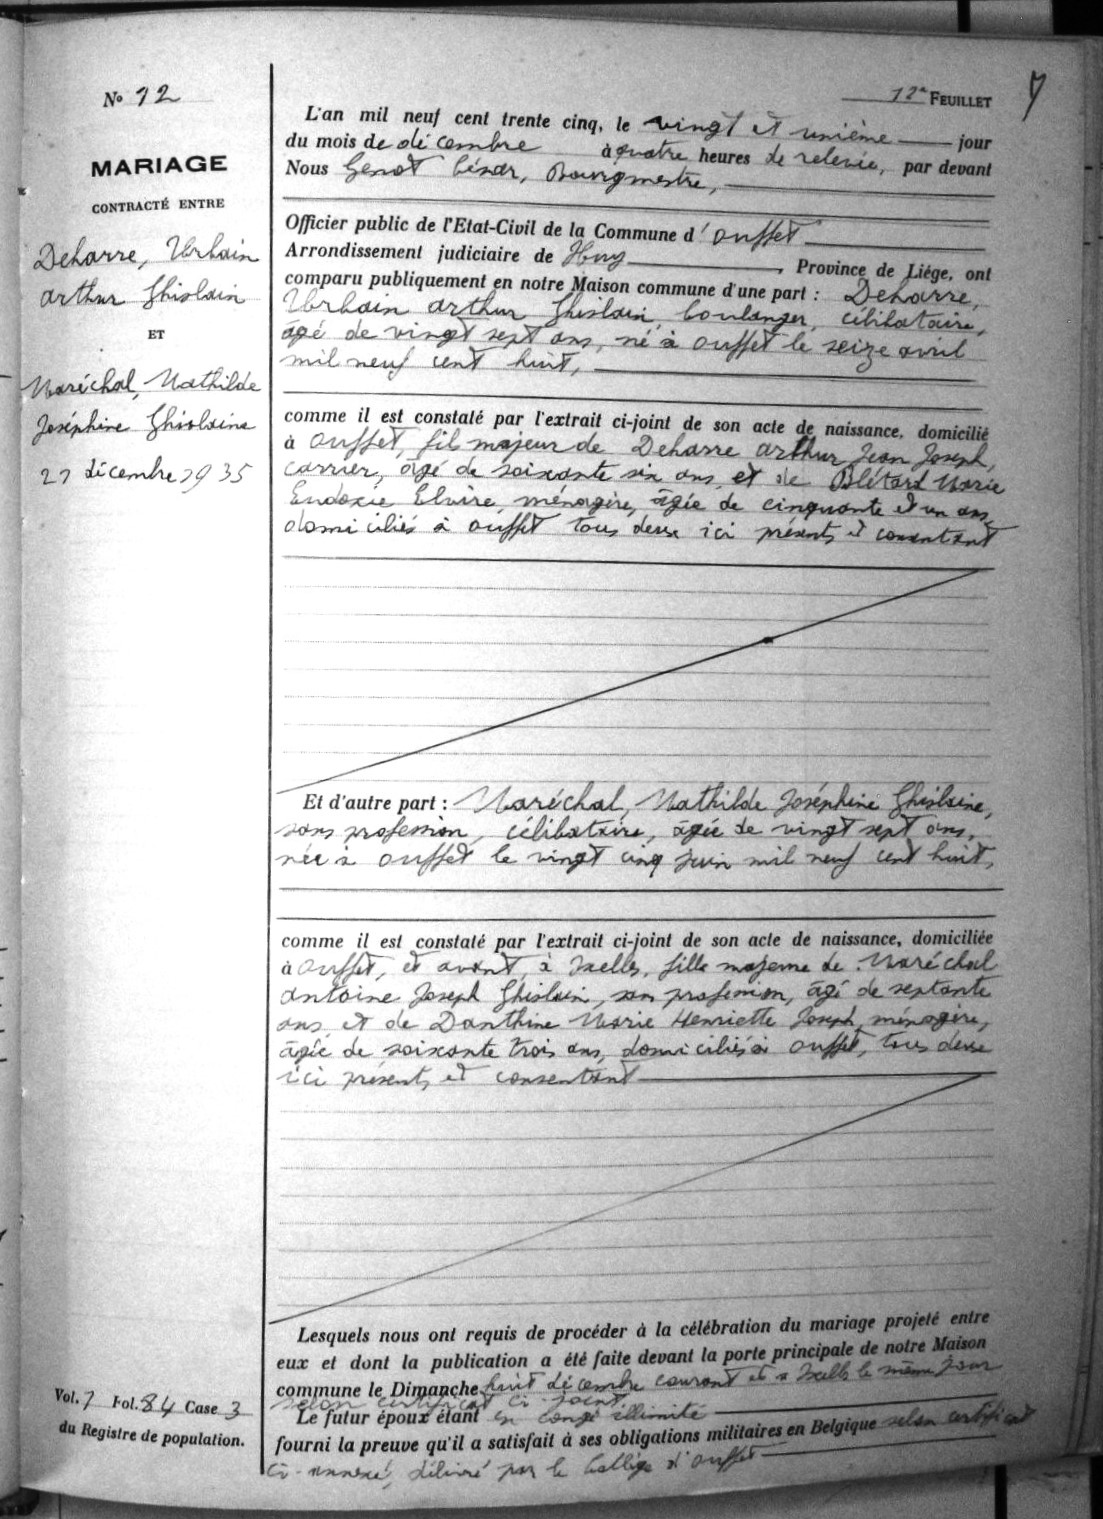 No 12
MARIAGE
CONTRACTÉ ENTRE
Deharre, Urbain
Arthur Ghislain
ET
Maréchal, Mathilde
Joséphine Ghislaine
21 décembre 1935
Vol. 7 Fol. 84 Case 3
du Registre de population.
12e FEUILLET
L'an mil neuf cent trente cinq, le vingt et unième jour
du mois de décembre à quatre heures de relevée, par devant
Nous Genot César, Bourgmestre,
Officier public de l'Etat-Civil de la Commune d'Ouffet
Arrondissement judiciaire de Huy, Province de Liége, ont
comparu publiquement en notre Maison commune d'une part : Deharre,
Urbain Arthur Ghislain, boulanger, célibataire,
âgé de vingt sept ans, né à Ouffet le seize avril
mil neuf cent huit,
comme il est constaté par l'extrait ci-joint de son acte de naissance, domicilié
à Ouffet, fils majeur de Deharre Arthur Jean Joseph,
carrier, âgé de soixante six ans et de Blétard Marie
Eudoxie Elvire, ménagère, âgée de cinquante et un ans,
domiciliés à Ouffet tous deux ici présents et consentant
Et d'autre part : Maréchal, Mathilde Joséphine Ghislaine,
sans profession, célibataire, âgée de vingt sept ans,
née à Ouffet le vingt cinq juin mil neuf cent huit,
comme il est constaté par l'extrait ci-joint de son acte de naissance, domiciliée
à Ouffet, et avant, à Ixelles, fille majeure de Maréchal
Antoine Joseph Ghislain, sans profession, âgé de septante
ans et de Danthine Marie Henriette Joseph, ménagère,
âgée de soixante trois ans, domiciliés à Ouffet, tous deux
ici présents et consentant
Lesquels nous ont requis de procéder à la célébration du mariage projeté entre
eux et dont la publication a été faite devant la porte principale de notre Maison
commune le Dimanche huit décembre courant et à Ixelles le même jour
selon certificat ci-joint
Le futur époux étant en congé illimité
fourni la preuve qu'il a satisfait à ses obligations militaires en Belgique selon certificat
ci-annexé, délivré par le Collège d'Ouffet